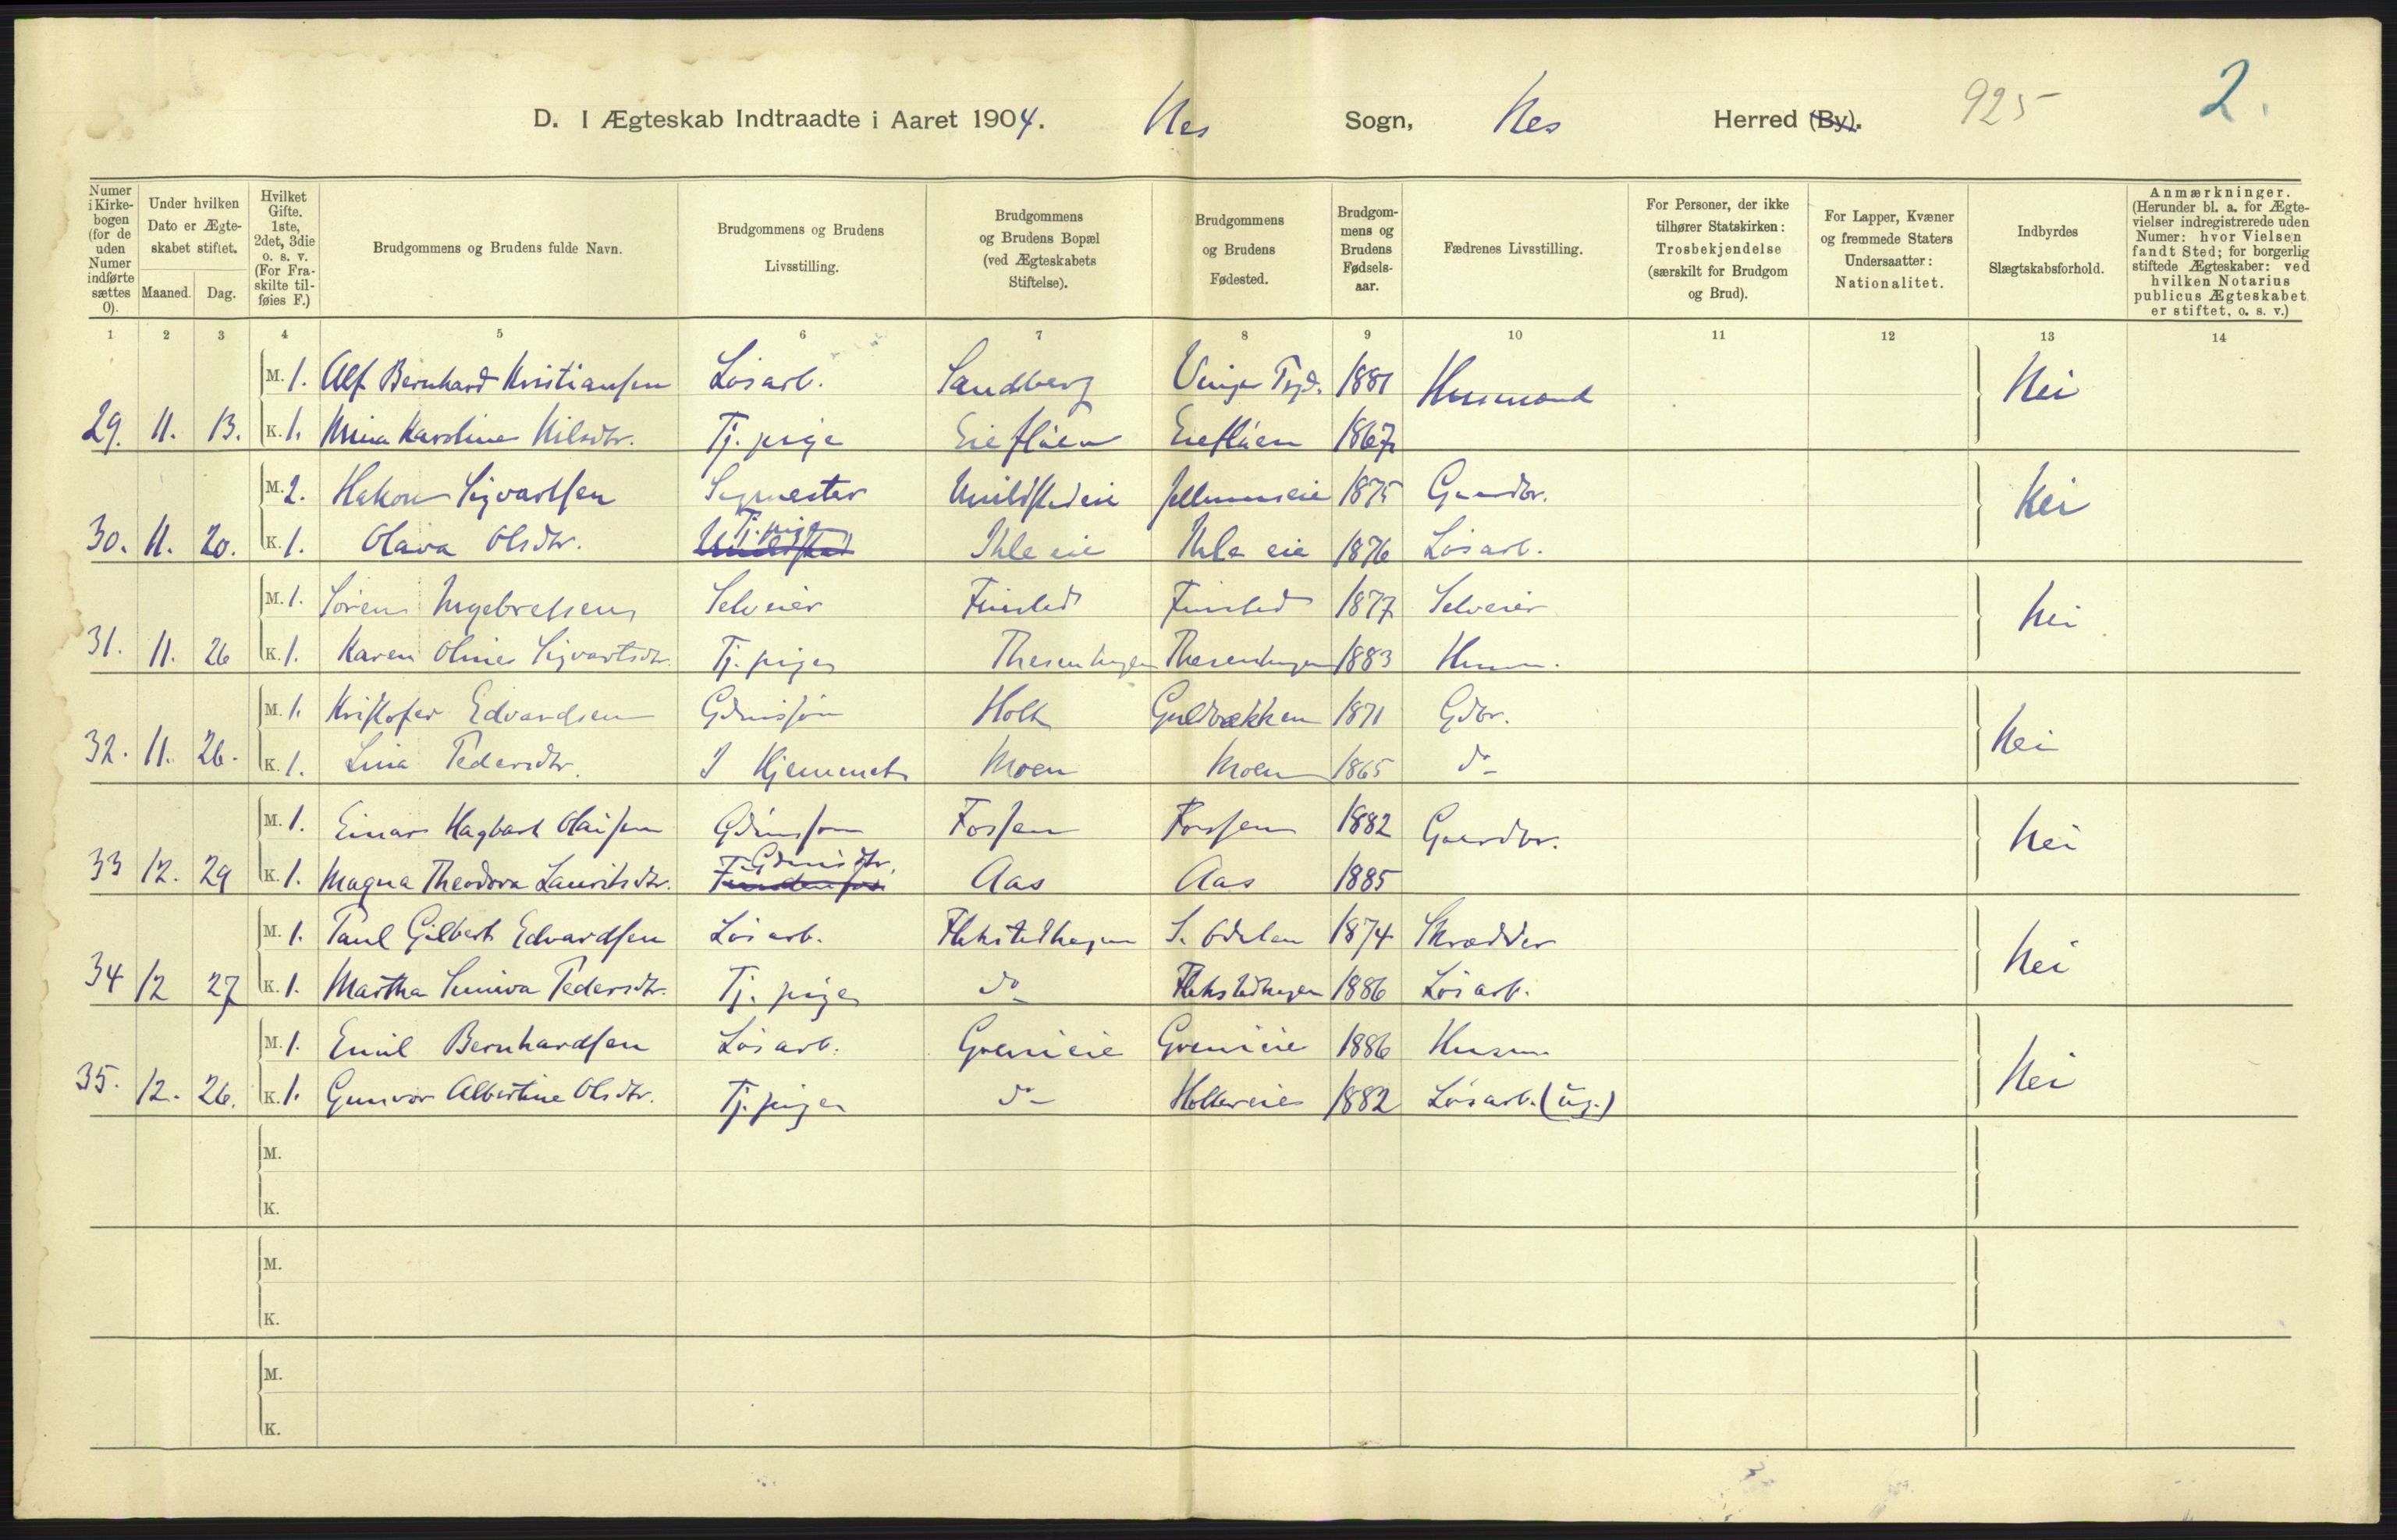 D. I Ægteskab Indtraadte i Aaret 1904. Nes Sogn, Nes Herred (By). 925 2.
Numer i Kirkebogen (for de uden Numer indførte sættes 0).
Under hvilken Dato er Ægteskabet stiftet.
Maaned. Dag.
Hvilket Gifte. 1ste, 2det, 3die o. s. v. (For Fraskilte tilføies F.)
Brudgommens og Brudens fulde Navn.
Brudgommens og Brudens Livsstilling.
Brudgommens og Brudens Bopæl (ved Ægteskabets Stiftelse).
Brudgommens og Brudens Fødested.
Brudgommens og Brudens Fødselsaar.
Fædrenes Livsstilling.
For Personer, der ikke tilhører Statskirken: Trosbekjendelse (særskilt for Brudgom og Brud).
For Lapper, Kvæner og fremmede Staters Undersaatter: Nationalitet.
Indbyrdes Slægtskabsforhold.
Anmærkninger. (Herunder bl. a. for Ægtevielser indregistrerede uden Numer: hvor Vielsen fandt Sted; for borgerlig stiftede Ægteskaber: ved hvilken Notarius publicus Ægteskabet er stiftet, o. s. v.)
1 2 3 4 5 6 7 8 9 10 11 12 13 14
M. 1. Alf Bernhard Kristiansen Løsarb. Sandberg 1881 Husmand Nei
29. 11. 13. K. 1. Mina Karoline Nilsdtr. Tj. pige Eiefløien Eiefløien 1867
M. 2. Hakon Sigvartsen Sagmester 1875 Gaardbr. Nei
30. 11. 20. K. 1. Olava Olsdtr. Tj. pige Ihle eie Ihle eie 1876 Løsarb.
M. 1. Søren Ingebretsen Selveier Finstad Finstad 1877 Selveier Nei
31. 11. 26 K. 1. Karen Oline Sigvartsdtr. Tj. pige Thesenhagen Thesenhagen 1883 Husm.
M. 1. Kristofer Edvardsen Gdmssøn Holt Guldbækken 1871 Gdbr. Nei
32. 11. 26. K. 1. Lina Pedersdtr. I Hjemmet Moen Moen 1865 do
M. 1. Einar Hagbart Olaisen Gdmssøn Fossen Fossen 1882 Gaardbr. Nei
33 12. 29 K. 1. Magna Theodora Lauritsdtr. Gdmsdtr. Aas Aas 1885
M. 1. Paul Gilbert Edvardsen Løsarb. Flekstadhagen S. Odalen 1874 Skrædder Nei
34 12 27 K. 1. Martha Suniva Pedersdtr. Tj. pige do Flekstadhagen 1886 Løsarb.
M. 1. Emil Bernhardsen Løsarb. Grenieie Grenieie 1886 Husm. Nei
35. 12. 26. K. 1. Gunvor Albertine Olsdtr. Tj. pige do Holtereie 1882 Løsarb. (ug.)
M.
K.
M.
K.
M.
K.